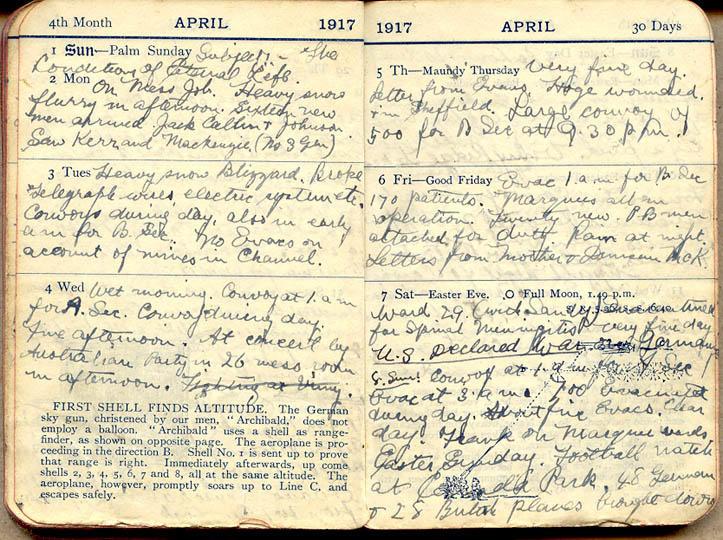 4th Month APRIL 1917
1 Sun—Palm Sunday Subject - The
Condition of Eternal Life.
2 Mon On Mess Job. Heavy snow
flurry in afternoon. Sixteen new
men arrived Jack Callin + Johnson.
Saw Kerr and Mackenzie (No 3 Gen)
3 Tues Heavy snow Blizzard. Broke
telegraph wires, electric system etc.
Convoys during day, also in early
a m for B. Sec. No Evacs on
account of mines in Channel.
4 Wed Wet morning. Convoy at 1. a m
for A. Sec. Convoy during day.
Fine afternoon. At concert by
Australian Party in 26 mess room
in afternoon. Fighting at Vimy.
FIRST SHELL FINDS ALTITUDE. The German
sky gun, christened by our men, "Archibald," does not
employ a balloon. "Archibald" uses a shell as range-
finder, as shown on opposite page. The aeroplane is pro-
ceeding in the direction B. Shell No. 1 is sent up to prove
that range is right. Immediately afterwards, up come
shells 2, 3, 4, 5, 6, 7 and 8, all at the same altitude. The
aeroplane, however, promptly soars up to Line C. and
escapes safely.
1917 APRIL 30 Days
5 Th—Maundy Thursday Very fine day.
Letter from Evans. Hoge wounded.
in Sheffield. Large convoy of
500 for B Sec at 9.30 p m.
6 Fri—Good Friday Evac 1. a m for B. Sec
170 patients. Marquees all on
operation. Twenty new P B men
attached for duty Rain at night.
Letters from Mother + McK.
7 Sat—Easter Eve. Full Moon, 1.49 p.m.
Ward 29.
for Spinal Meningitis. very fine day
U.S. Declared War Germany
8 Sun. convoy at 1. a m for B Sec
Evac at 3. a m. 700 Evacuated
during day. Evacs. Clear
day. on Marquee wards
Easter Sunday. Football match
at Park. 48 German
+ 28 British planes brought down